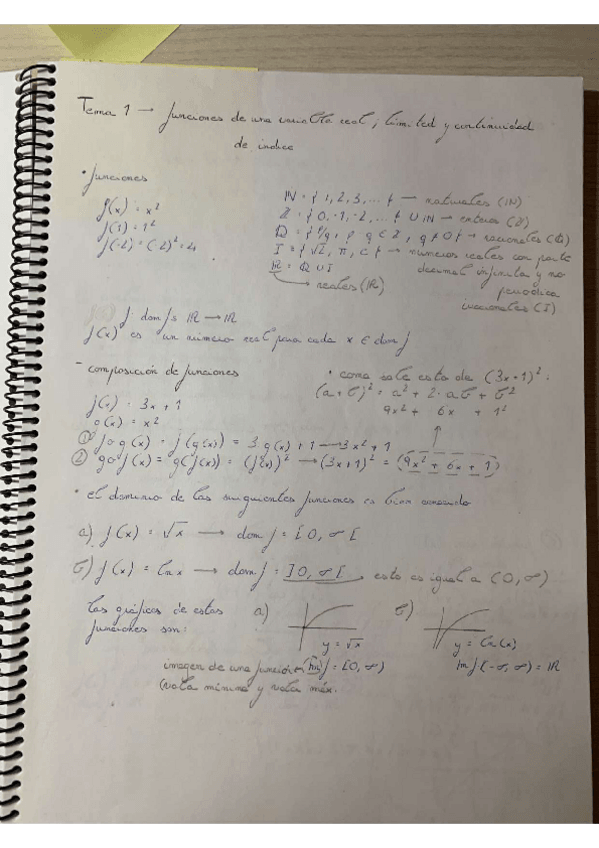 Tema 1 → funciones de una variable real, limited y continuidad
de indice
• funciones
f(x) = x²
f(1) = 1²
f(-2) = (-2)² = 4
ℕ = { 1, 2, 3, ... } — naturales (ℕ)
ℤ = { 0, -1, -2, ... } ∪ ℕ — enteros (ℤ)
ℚ = { p/q, p q ∈ ℤ, q ≠ 0 } — racionales (ℚ)
I = { √2, π, e } — números reales con parte
decimal infinita y no
periódica
irracionales (I)
ℝ = ℚ ∪ I
→ reales (ℝ)
f: dom f ⊆ ℝ → ℝ
f(x) es un número real para cada x ∈ dom f
- composición de funciones
f(x) = 3x + 1
g(x) = x²
① f o g(x) = f(g(x)) = 3 g(x) + 1 → 3x² + 1
② g o f(x) = g(f(x)) = (f(x))² → (3x+1)² = (9x² + 6x + 1)
• como sale esto de (3x+1)²:
(a+b)² = a² + 2·ab + b²
9x² + 6x + 1²
• el dominio de las siguientes funciones es bien conocido
a) f(x) = √x → dom f = [0, ∞[
b) f(x) = ln x → dom f = ]0, ∞[ → esto es igual a (0, ∞)
las gráficas de estas
funciones son:
a)
y = √x
b)
y = ln(x)
imagen de una función (Im) f = [0, ∞)
(valor mínimo y valor máx.
Im f (-∞, ∞) = ℝ